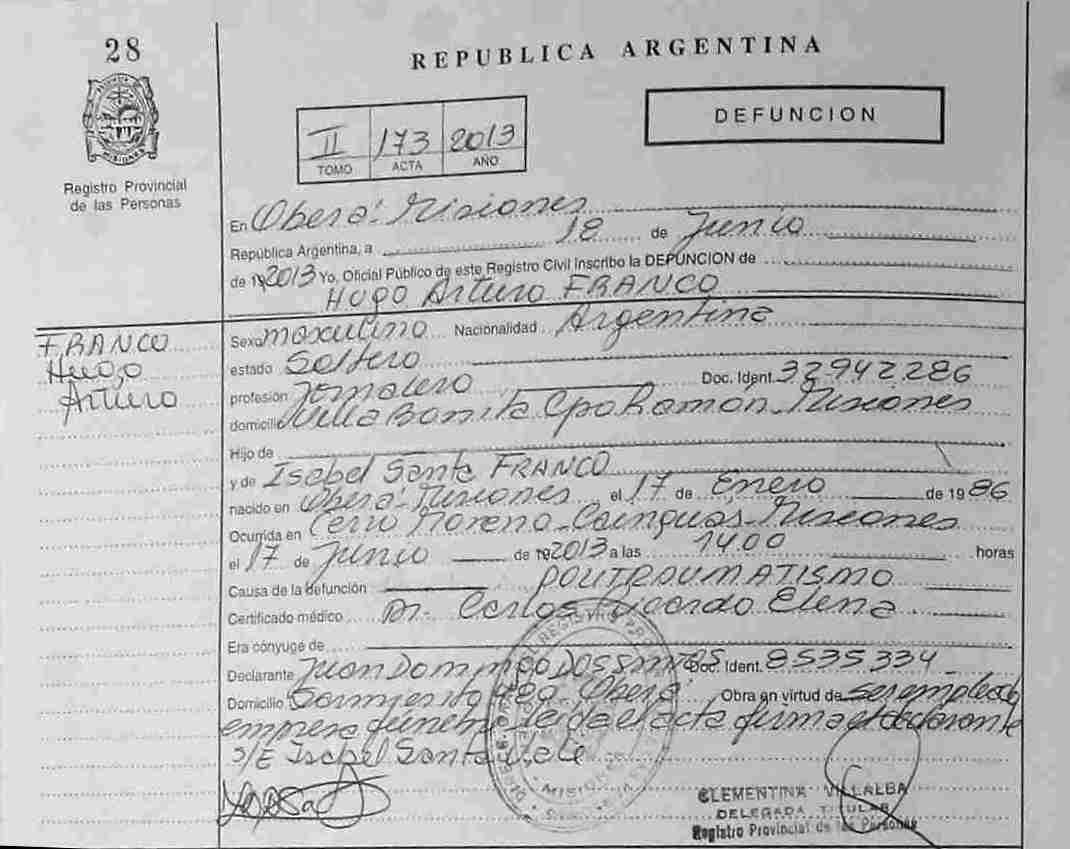 28
REPUBLICA ARGENTINA
DEFUNCION
II 173 2013
TOMO ACTA AÑO
MISIONES
Registro Provincial
de las Personas
En Oberá - Misiones
República Argentina, a 18 de Junio
de 19 2013 Yo, Oficial Público de este Registro Civil inscribo la DEFUNCION de
Hugo Arturo FRANCO
FRANCO
Hugo
Arturo
Sexo masculino Nacionalidad Argentina
estado Soltero
profesión Jornalero Doc. Ident. 32942286
domicilio Villa Bonita Cpo Ramón - Misiones
Hijo de
y de Isabel Santa FRANCO
nacido en Oberá - Misiones el 17 de Enero de 1986
Ocurrida en Cerro Moreno - Cainguás - Misiones
el 17 de Junio de 19 2013 a las 1400 horas
Causa de la defunción POLITRAUMATISMO
Certificado médico Dr. Carlos Ricardo Elena
Era cónyuge de
Declarante Juan Domingo DOS SANTOS Doc. Ident. 8535334
Domicilio Sarmiento Oberá Obra en virtud de ser empleado
empresa fúnebre leída el acta firma el declarante
S/E Isabel Santa Vale
CLEMENTINA VILLALBA
DELEGADA TITULAR
Registro Provincial de las Personas